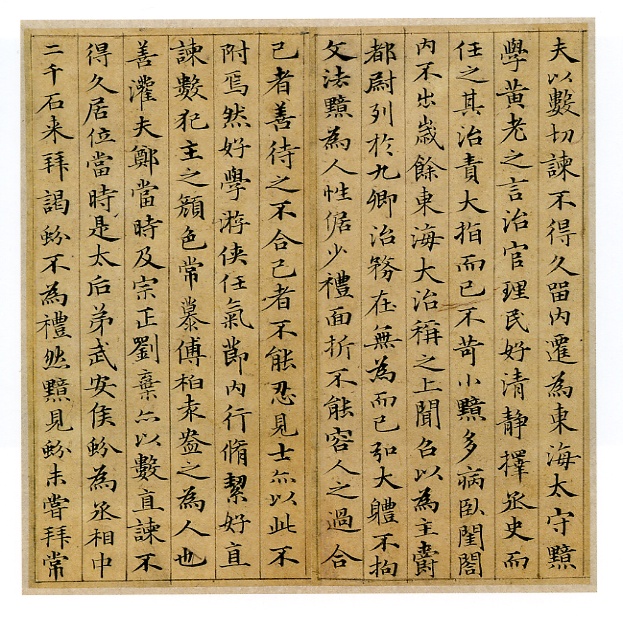 夫以數切諫不得久留內遷為東海太守黯
學黃老之言治官理民好清靜擇丞史而
任之其治責大指而已不苛小黯多病臥閨閤
內不出歲餘東海大治稱之上聞召以為主爵
都尉列於九卿治務在無為而已弘大軆不拘
文法黯為人性倨少禮面折不能容人之過合
己者善待之不合己者不能忍見士亦以此不
附焉然好學游俠任氣節內行脩絜好直
諫數犯主之顏色常慕傅柏袁盎之為人也
善灌夫鄭當時及宗正劉棄亦以數直諫不
得久居位當時是太后弟武安侯蚡為丞相中
二千石来拜謁蚡不為禮然黯見蚡未嘗拜常